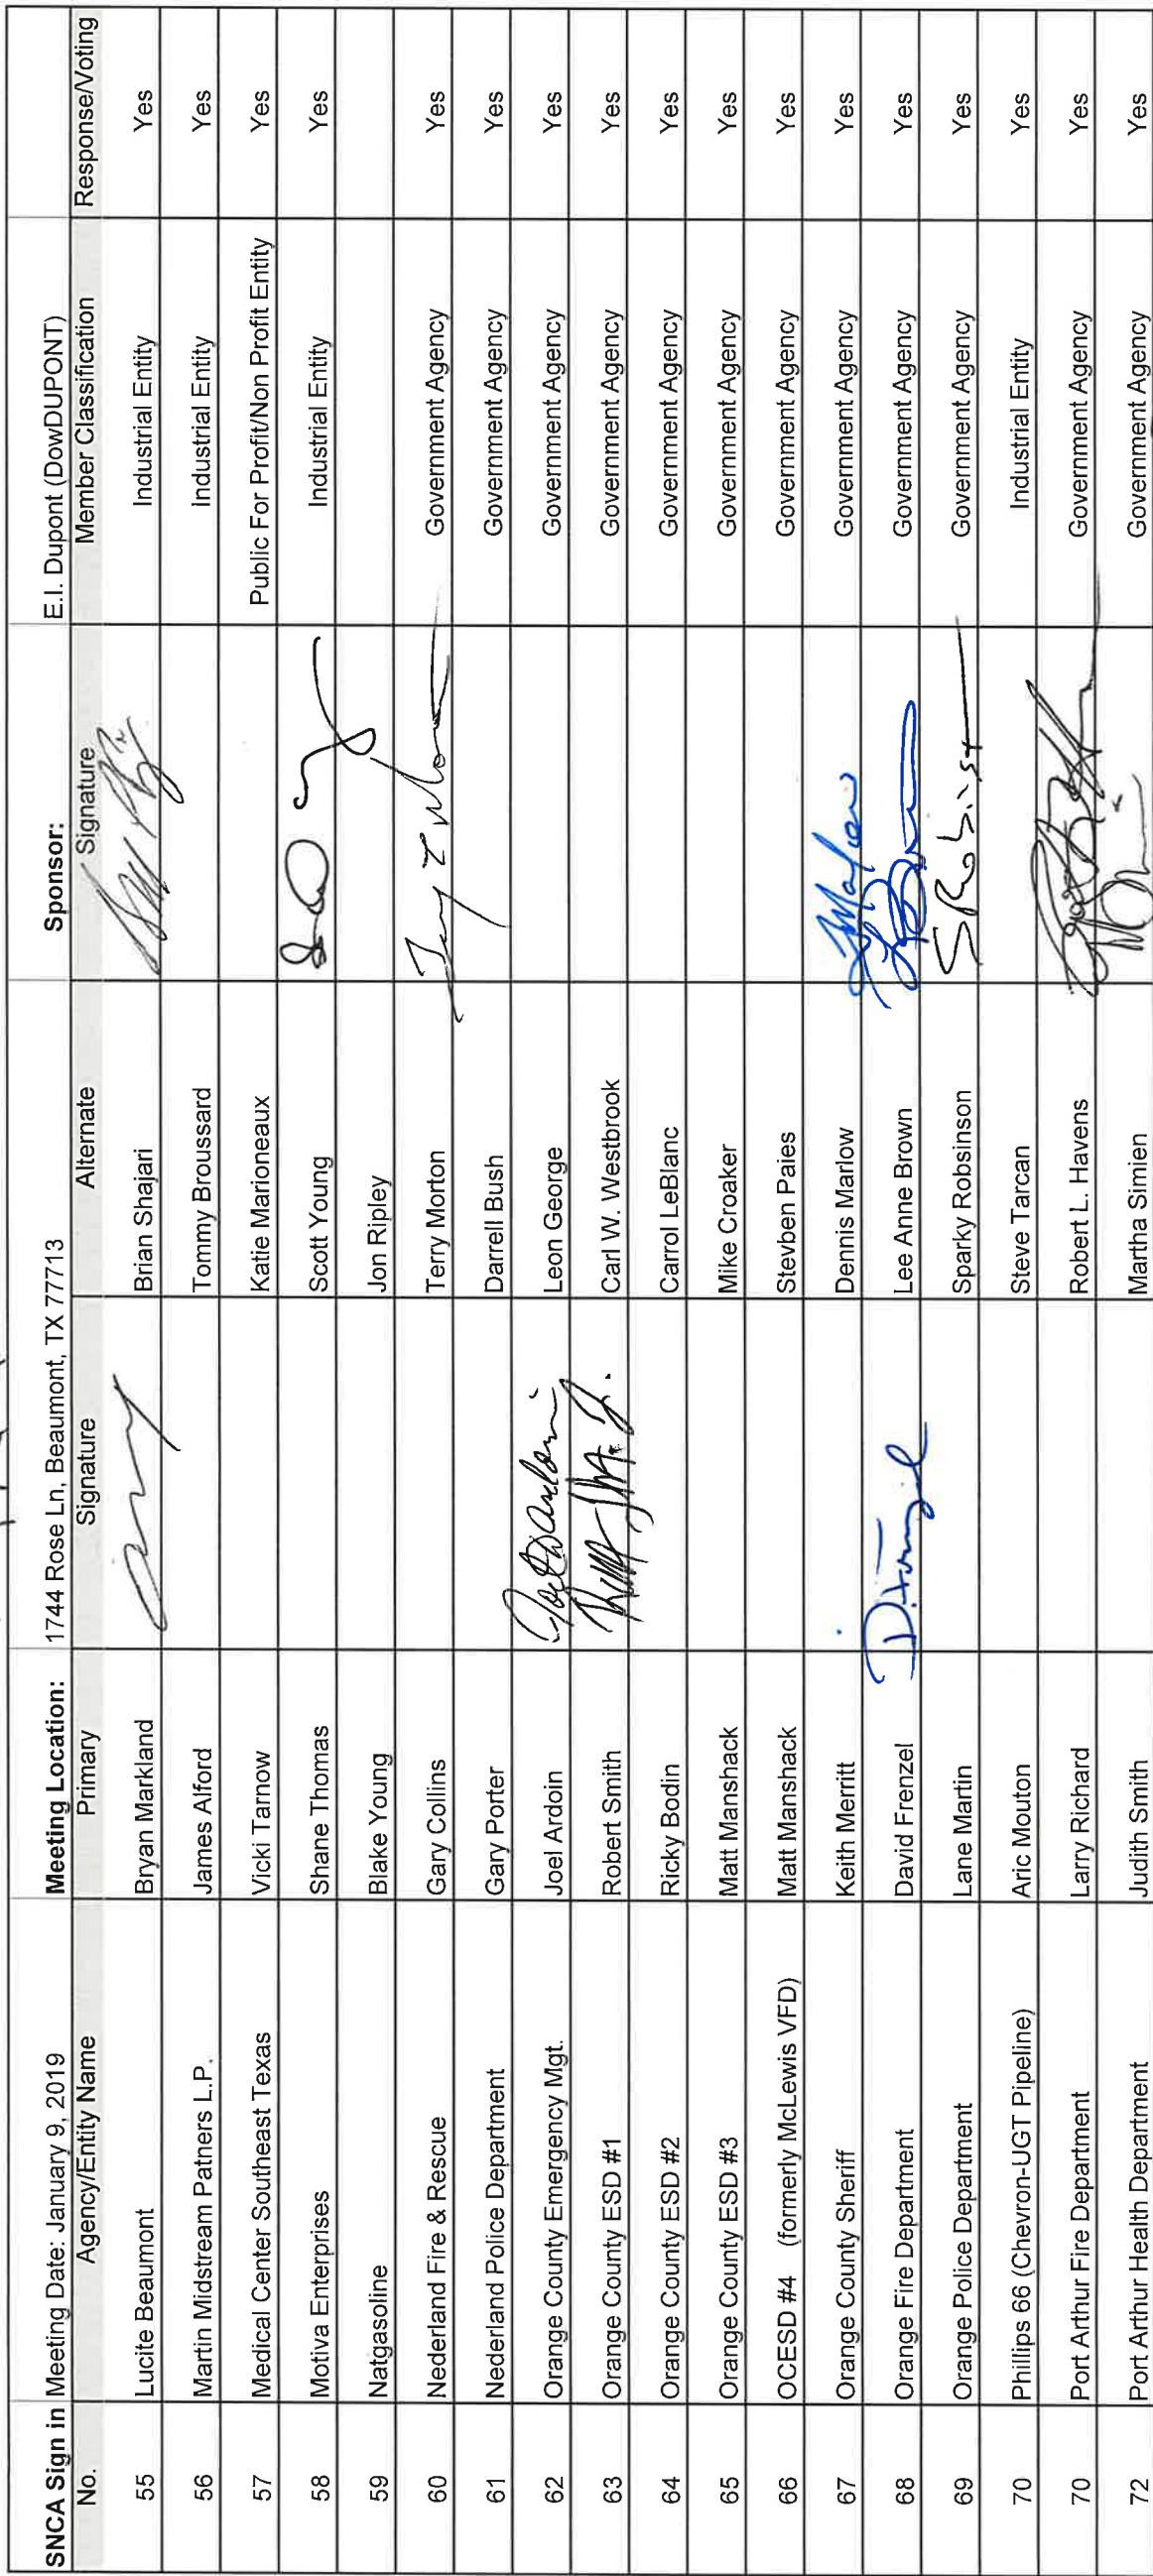 SNCA Sign in Meeting Date: January 9, 2019 Meeting Location: 1744 Rose Ln, Beaumont, TX 77713 Sponsor: E.I. Dupont (DowDUPONT)
No. Agency/Entity Name Primary Signature Alternate Signature Member Classification Response/Voting
55 Lucite Beaumont Bryan Markland Brian Shajari Industrial Entity Yes
56 Martin Midstream Patners L.P. James Alford Tommy Broussard Industrial Entity Yes
57 Medical Center Southeast Texas Vicki Tarnow Katie Marioneaux Public For Profit/Non Profit Entity Yes
58 Motiva Enterprises Shane Thomas Scott Young Industrial Entity Yes
59 Natgasoline Blake Young Jon Ripley
60 Nederland Fire & Rescue Gary Collins Terry Morton Government Agency Yes
61 Nederland Police Department Gary Porter Darrell Bush Government Agency Yes
62 Orange County Emergency Mgt. Joel Ardoin Joel Ardoin Leon George Government Agency Yes
63 Orange County ESD #1 Robert Smith Carl W. Westbrook Government Agency Yes
64 Orange County ESD #2 Ricky Bodin Carrol LeBlanc Government Agency Yes
65 Orange County ESD #3 Matt Manshack Mike Croaker Government Agency Yes
66 OCESD #4 (formerly McLewis VFD) Matt Manshack Stevben Paies Government Agency Yes
67 Orange County Sheriff Keith Merritt Dennis Marlow Government Agency Yes
68 Orange Fire Department David Frenzel Lee Anne Brown Government Agency Yes
69 Orange Police Department Lane Martin Sparky Robsinson Government Agency Yes
70 Phillips 66 (Chevron-UGT Pipeline) Aric Mouton Steve Tarcan Industrial Entity Yes
70 Port Arthur Fire Department Larry Richard Robert L. Havens Government Agency Yes
72 Port Arthur Health Department Judith Smith Martha Simien Government Agency Yes